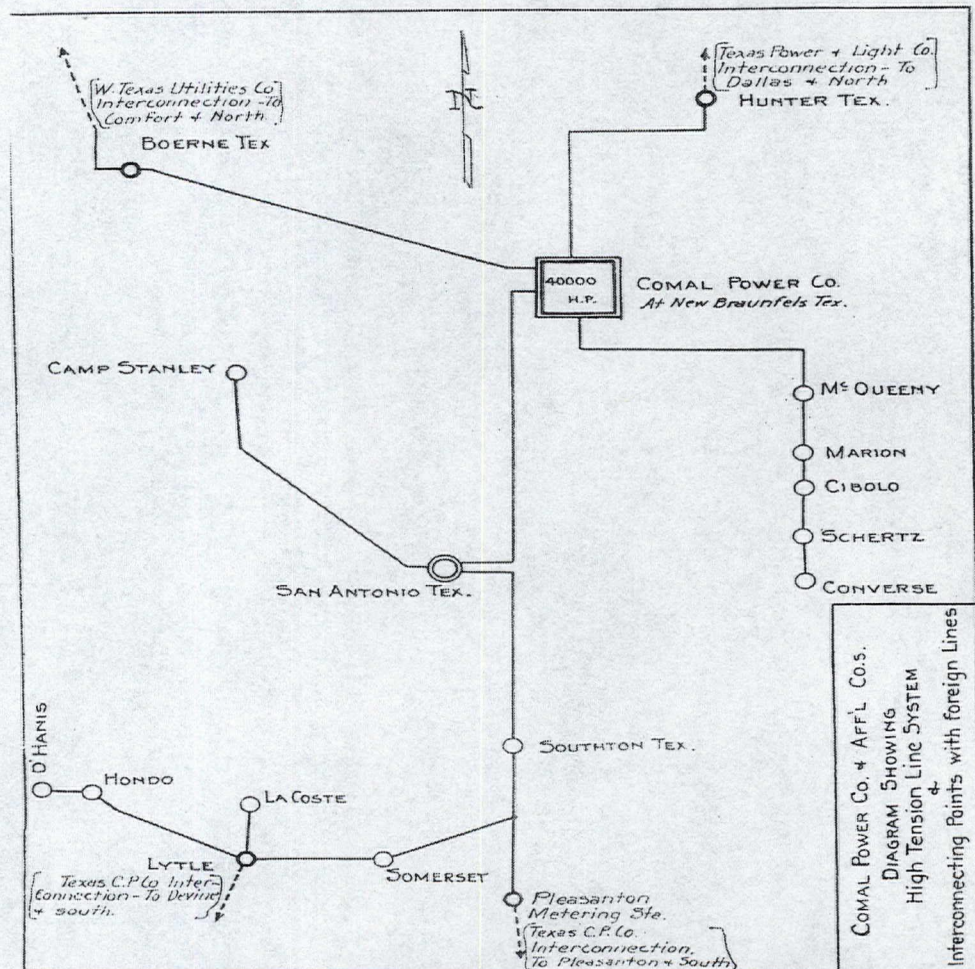 W. Texas Utilities Co
Interconnection - To
Comfort & North
BOERNE TEX
N
Texas Power & Light Co.
Interconnection - To
Dallas & North
HUNTER TEX.
40000
H.P.
COMAL POWER CO.
At New Braunfels Tex.
CAMP STANLEY
McQUEENY
MARION
CIBOLO
SCHERTZ
CONVERSE
SAN ANTONIO TEX.
SOUTHTON TEX.
D'HANIS
HONDO
LA COSTE
LYTLE
SOMERSET
Texas C.P. Co Inter-
Connection - To Devine
& south.
Pleasanton
Metering Sta.
Texas C.P. Co.
Interconnection.
To Pleasanton & South
COMAL POWER CO. & AFF'L CO.S.
DIAGRAM SHOWING
HIGH TENSION LINE SYSTEM
&
Interconnecting Points with Foreign Lines